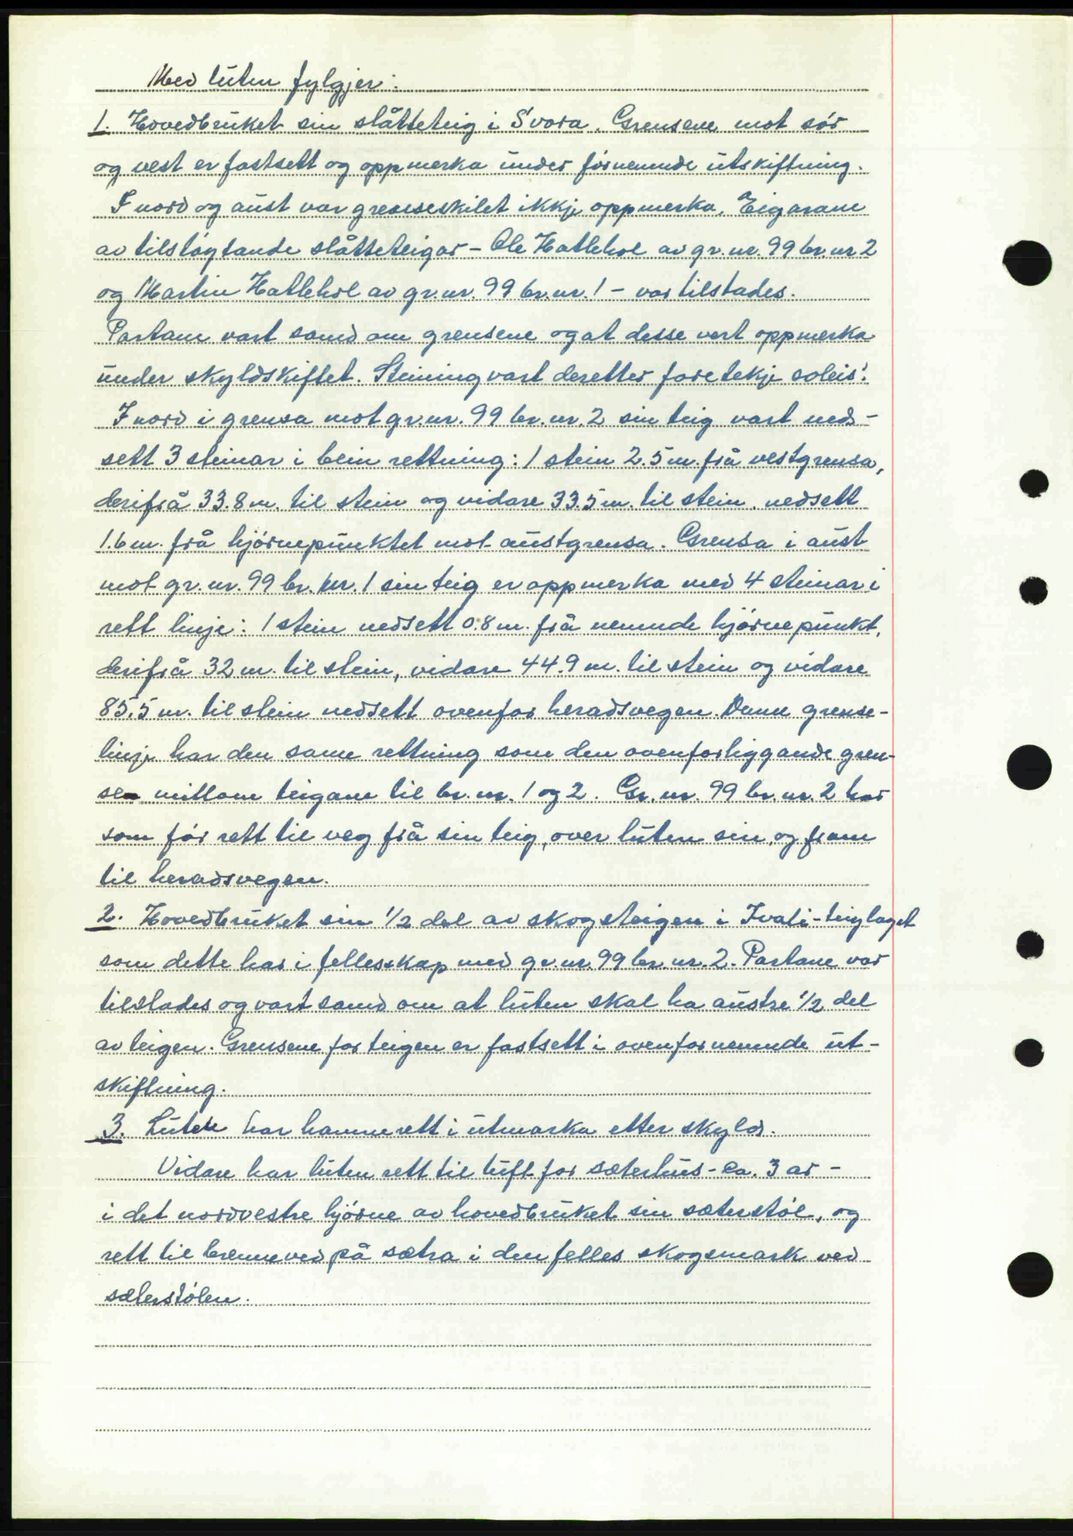 Med luten fylgjer:
1. Hovedbruket sin slåtteteig i Svora. Grensene mot sør
og vest er fastsett og oppmerka under fornemnde utskiftning.
I nord og aust var grenseskilet ikkje oppmerka. Eigarane
av tilstøytande slåtteteigar - Ole Hatlehol av gr. nr. 99 br. nr 2
og Martin Hatlehol av gr. nr. 99 br. nr. 1 - var tilstades.
Partane vart samd om grensene og at desse vert oppmerka
under skyldskiftet. Steining vart deretter foretekje soleis:
I nord i grensa mot gr. nr. 99 br. nr. 2 sin teig vart ned-
sett 3 steinar i bein rettning: 1 stein 2.5 m. frå vestgrensa,
derifrå 33.8 m. til stein og vidare 33.5 m. til stein, nedsett
1.6 m. frå hjørnepunktet mot austgrensa. Grensa i aust
mot gr. nr. 99 br. nr. 1 sin teig er oppmerka med 4 steinar i
rett linje: 1 stein nedsett 0.8 m. frå nemnde hjørnepunkt,
derifrå 32 m. til stein, vidare 44.9 m. til stein og vidare
85.5 m. til stein nedsett ovenfor heradsvegen. Denne grense-
linje har den same rettning som den ovenforliggande gren-
se millom teigane til br. nr. 1 og 2. Gr. nr. 99 br. nr. 2 har
som før rett til veg frå sin teig, over luten sin, og fram
til heradsvegen.
2. Hovedbruket sin 1/2 del av skogsteigen i Ivali-teiglaget
som dette har i fellesskap med gr. nr. 99 br. nr. 2. Partane var
tilstades og vart samd om at luten skal ha austre 1/2 del
av teigen. Grensene for teigen er fastsett i ovenfornemnde ut-
skiftning.
3. Luten har hamnerett i utmarka etter skyld.
Vidare har luten rett til tuft for sæterhus - ca. 3 ar -
i det nordvestre hjørne av hovedbruket sin sæterstøl, og
rett til brenneved på sætra i den felles skogsmark ved
sæterstølen.